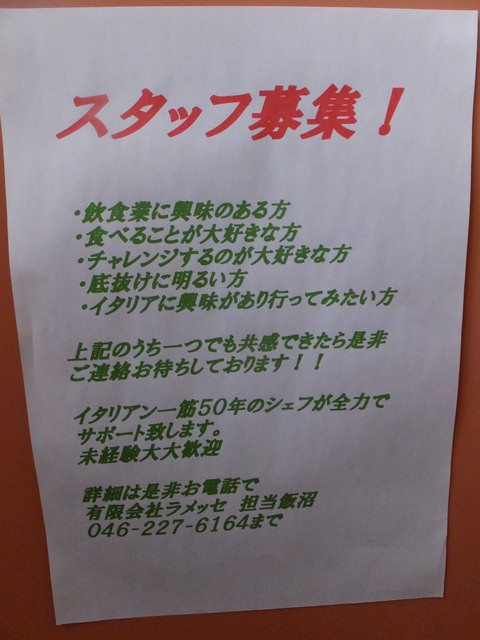 スタッフ募集！
・飲食業に興味のある方
・食べることが大好きな方
・チャレンジするのが大好きな方
・底抜けに明るい方
・イタリアに興味があり行ってみたい方
上記のうち一つでも共感できたら是非
ご連絡お待ちしております！！
イタリアン一筋50年のシェフが全力で
サポート致します。
未経験大大歓迎
詳細は是非お電話で
有限会社ラメッセ 担当飯沼
046-227-6164まで